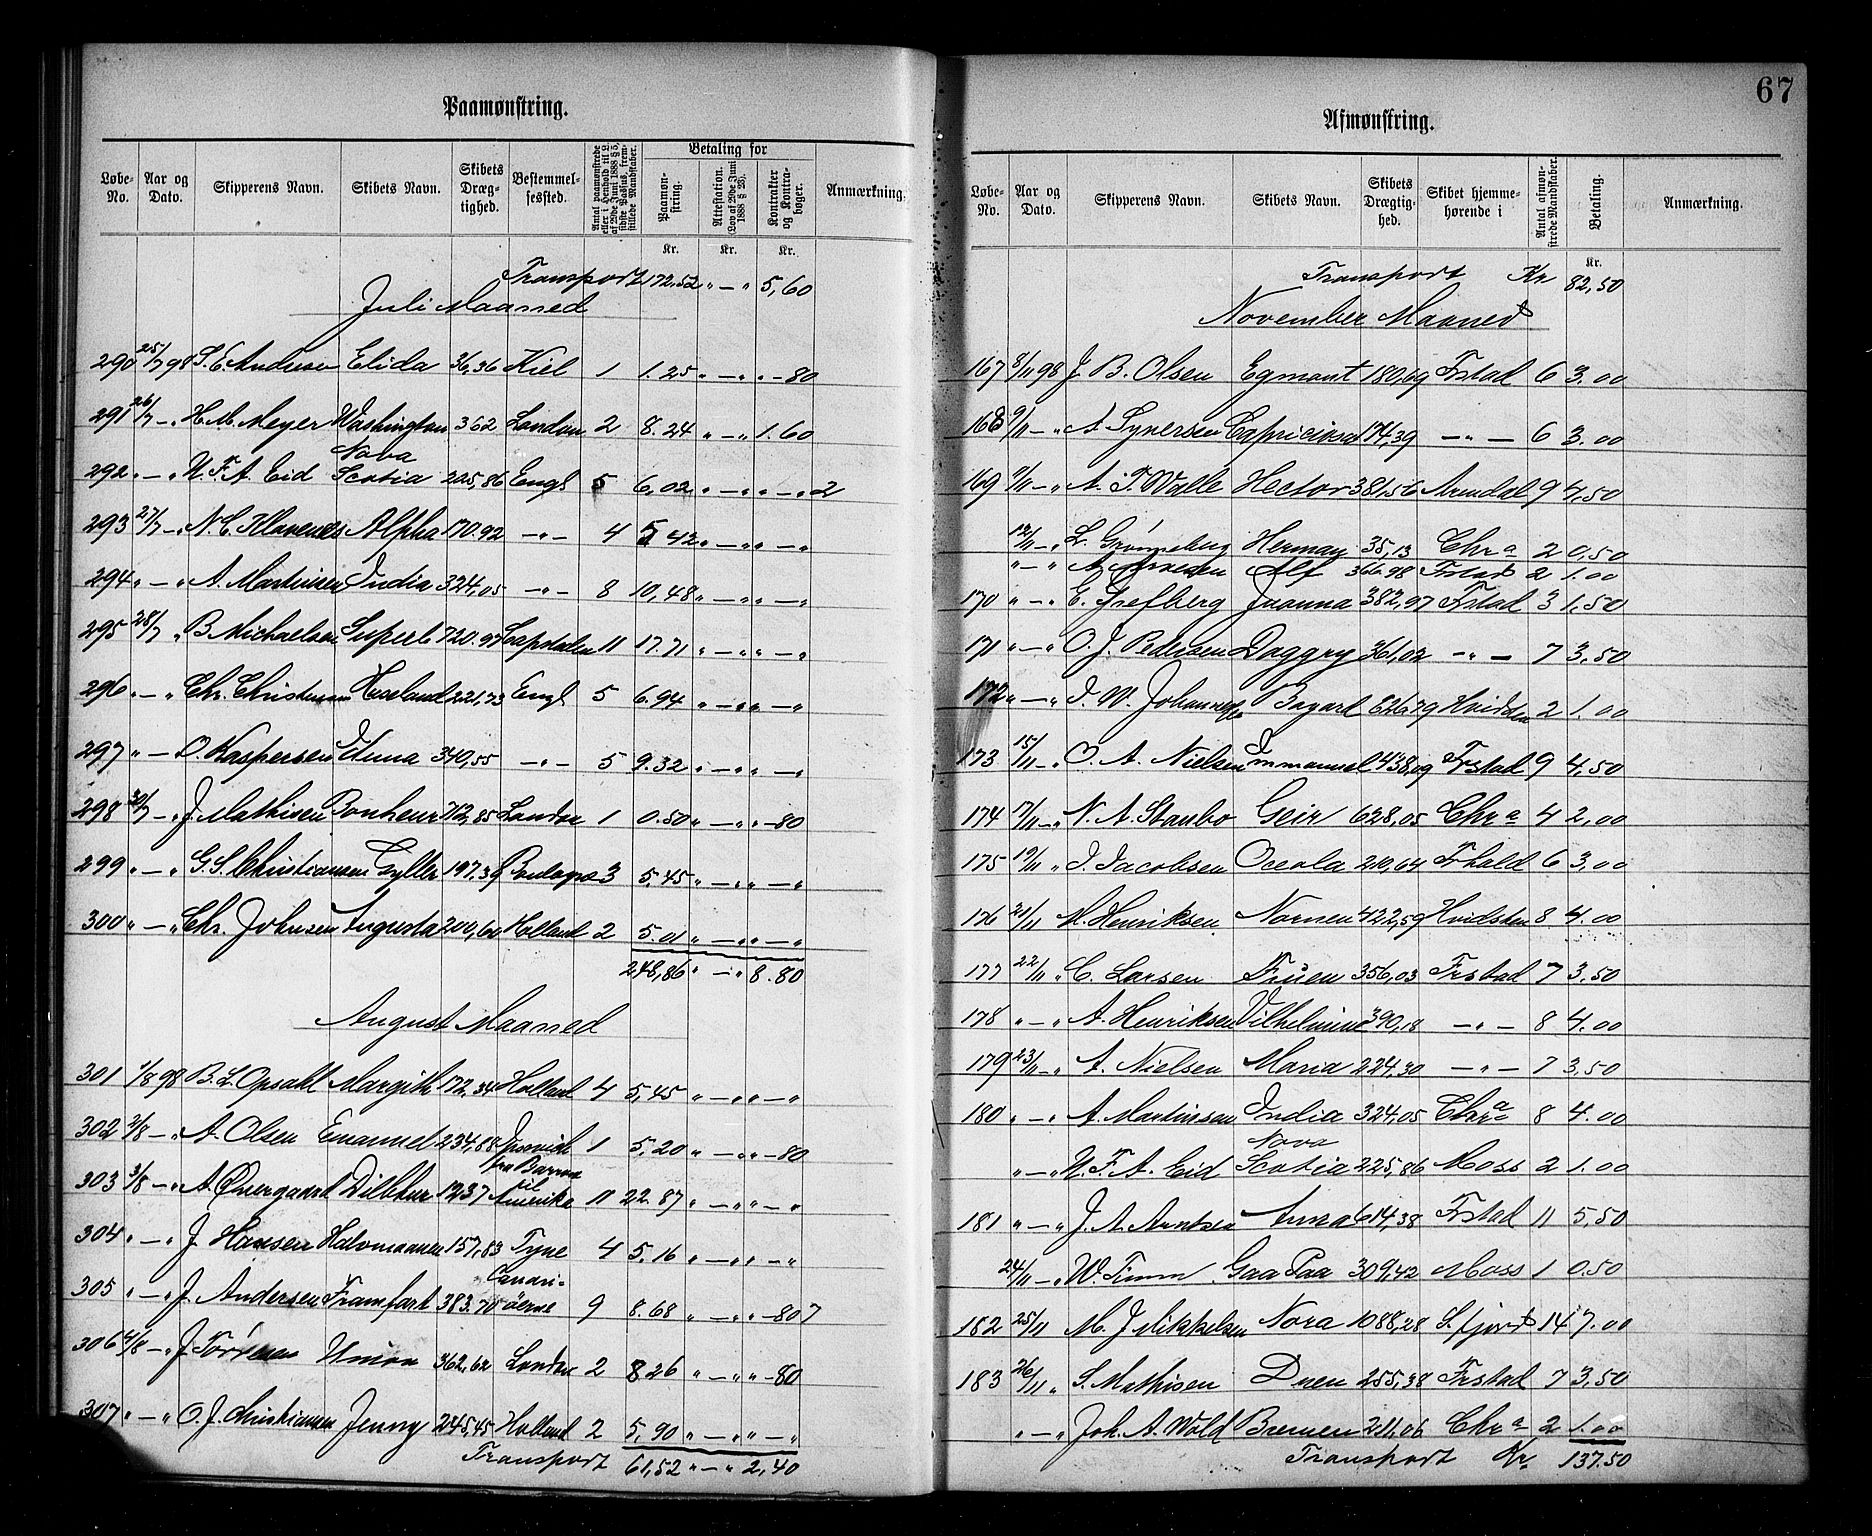 Paamønstring.
Løbe-No. Aar og Dato. Skipperens Navn. Skibets Navn. Skibets Dræg-tighed. Bestemmel-sessted. Antal paamønstrede eller i Henhold til L. af 29de Juni 1888 § 5, sidste Passus, frem-stillede Mandskaber. Betaling for Paamøn-string. Attestation. (Lov af 29de Juni 1888 § 25). Kontrakter og Kontra-bøger. Anmærkning.
Kr. Kr. Kr.
Transport 172,52 " — " 5,60
Juli Maaned
290 25/7 98 S. E. Andersen Elida 36,36 Kiel 1 1.25 " — " " — 80
291 26/7 — " H. M. Meyer Washington 362 London 2 8.24 " — " 1.60
292 " — " N. F. A. Eid Nova Scotia 225,86 Engl 5 6,02 " — " " — " 2
293 27/7 — " N. C. Klavenes Alpha 170.92 — " — 4 5 42 " — " " — "
294 " — " A. Martinsen India 324,05 — " — 8 10,48 " — " " — "
295 28/7 " B. Michaelsen Superb 720.97 Capstaden 11 17.71 " — " " — "
296 " — " Chr. Christensen 221,73 Engl 5 6.94 " — " " — "
297 " — O. Kaspersen 340,55 — " — 5 9.32 " — " " — "
298 30/7 — " J. Mathisen Bonheur 712,85 London 1 0.50 " — " " — 80
299 " — " G. S. Christiansen Gyller 197,38 3 5,45 " — " " — "
300 " — " Chr. Johnsen Augusta 200,60 Holland 2 5.01 " — " " — "
248,86 " — " 8.80
August Maaned
301 1/8 98 B. L. Opsahl Margith 172,34 Holland 4 5,45 " — " " — "
302 2/8 — " A. Olsen Emanuel 234,88 Ipsvich 1 5,20 " — " " — 80
303 3/8 — " A. Øvergaard 1237 til Amerika 11 22.87 " — " " — "
304 " — " J. Hansen Halvmaanen 157,83 Tyne 4 5,16 " — " " — "
305 " — " J. Andersen Framfart 383.70 Canari-øerne 9 8.68 " — " " — 80 7
306 4/8 — " J. Union 362,62 London 2 8.26 " — " " — 80
307 " — " O. J. Christiansen Jenny 245,45 Holland 2 5,90 " — " " — "
Transport 61,52 " — " 2,40
67
Afmønstring.
Løbe-No. Aar og Dato. Skipperens Navn. Skibets Navn. Skibets Drægtig-hed. Skibet hjemme-hørende i Antal afmøn-strede Mandskaber. Betaling. Anmærkning.
Kr.
Transport Kr 82,50
November Maaned
167 8/11 98 J. B. Olsen Egmont 180,69 Frstad 6 3.00
168 9/11 — " A. Synersen Capricieuse 174,39 — " — 6 3.00
169 9/11 — " A. T. Walle Hector 381,56 Arendal 9 4,50
12/11 — " L. Grønneberg Hermay 35,13 Chra 2 0,50
" — " A. Alf 366.98 Frstad 2 1.00
170 " — " E. Grefberg Joanna 382,97 Fstad 3 1,50
171 " — " O. J. Pedersen Daggry 361,02 — " — 7 3,50
172 " — " J. W. Johannessen 626,79 Hvidsten 2 1.00
173 15/11 — " O. A. Nielsen Immanuel 438,09 Frstad 9 4,50
174 17/11 — " N. A. Staubo Geir 628,05 Chra 4 2,00
175 19/11 " J. Jacobsen Oceola 210,64 Frhald 6 3,00
176 21/11 M. Henriksen Nornen 422,59 Hvidsten 8 4.00
177 22/11 " C. Larsen Fruen 356,03 Frstad 7 3,50
178 " — " A. Henriksen Vilhelmine 390,18 — " — 8 4.00
179 23/11 — " A. Nielsen Maria 224,30 — " — 7 3,50
180 " — " A. Martinsen India 324,05 Chra 8 4.00
" — " N. F. A. Eid Nova Scotia 225,86 Moss 2 1.00
181 " — " J. A. Arntsen Anna 614,38 Fstad 11 5,50
24/11 — " W. Timm Gaa Paa 309,42 Moss 1 0.50
182 25/11 M. J. Mikkelsen Nora 1088,28 S. fjord 14 7.00
183 26/11 " S. Mathisen Duen 255,38 Frstad 7 3,50
" — " Joh. A. Wold Bremen 211,06 Chra 2 1.00
Transport Kr. 137.50